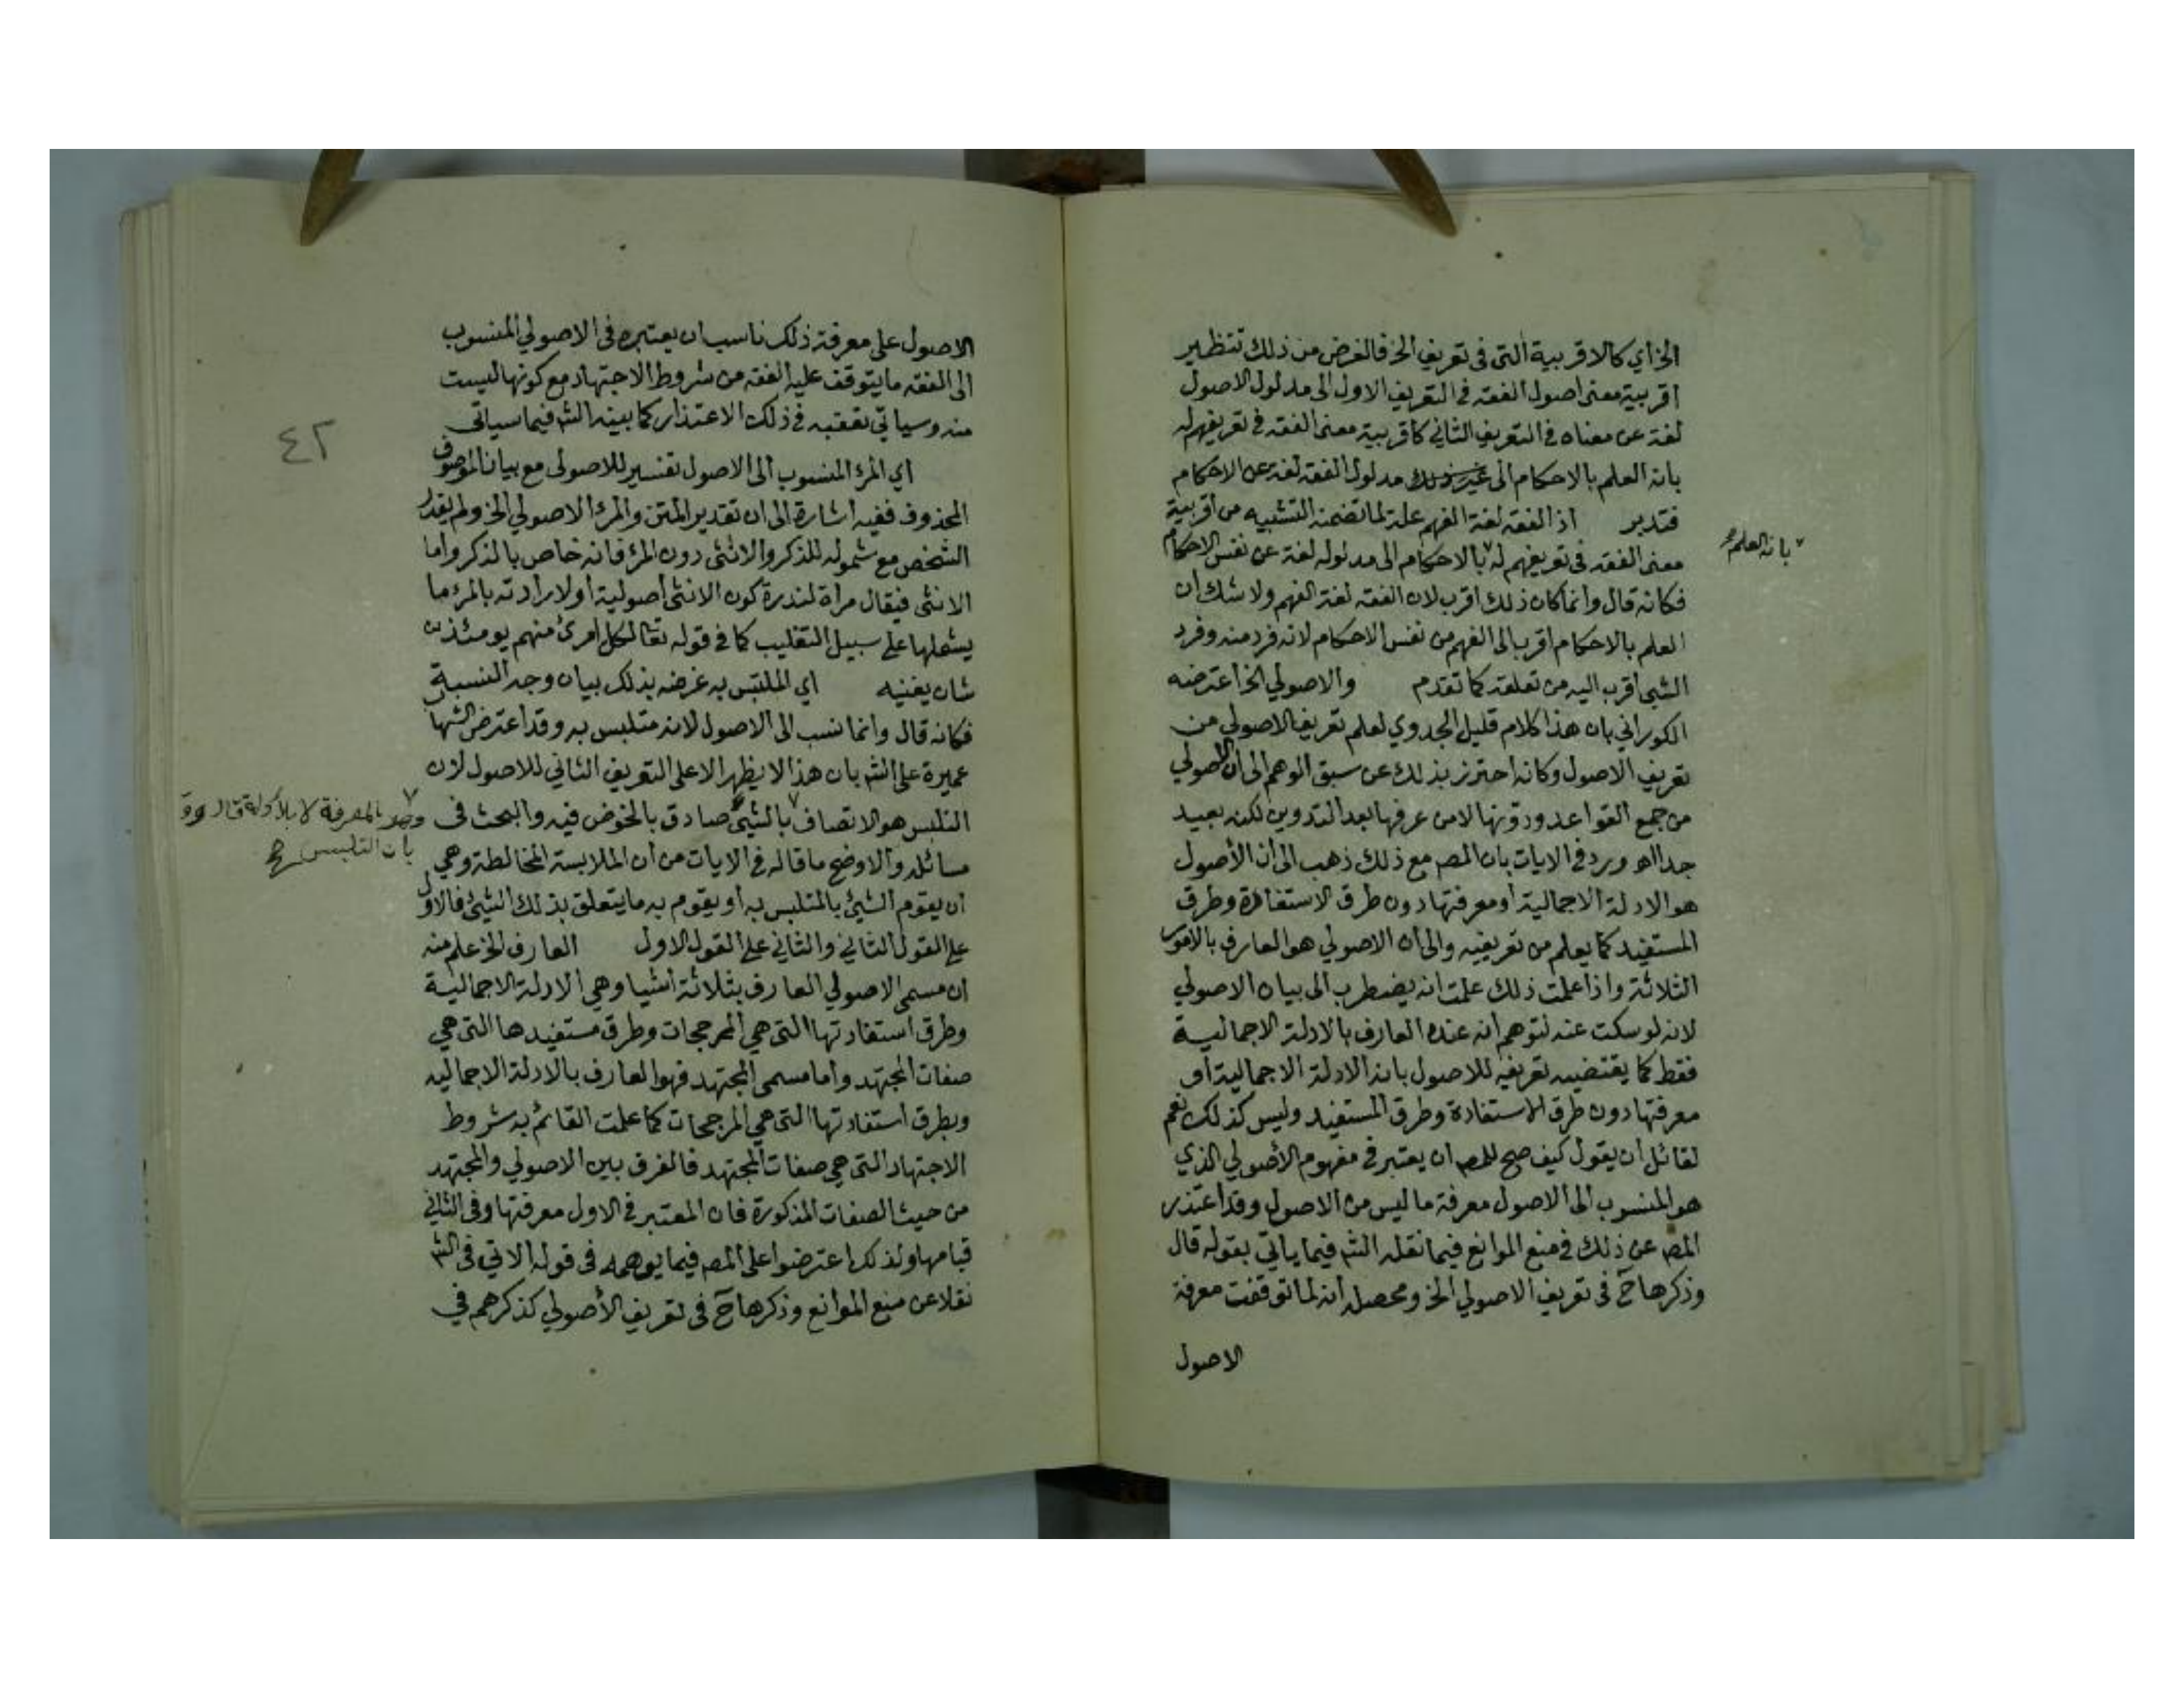 الخ أي كالاقربية التى فى تعريف الخ فالغرض من ذلك تنظير
اقربية معنى اصول الفقه فى التعريف الاول الى مدلول الاصول
لغة عن معناه فى التعريف الثاني كاقربية معنى الفقه فى تعريفهم له
بانه العلم بالاحكام الى مدلول الفقه لغة عن الاحكام
فتدبر اذ الفقه لغة الفهم علة لما تضمنه التشبيه من أقربية
معنى الفقه فى تعريفهم له بالاحكام الى مدلوله لغة عن نفس الاحكام
بانه العلم
فكانه قال وانما كان ذلك اقرب لان الفقه لغة الفهم ولا شك ان
العلم بالاحكام اقرب الى الفهم من نفس الاحكام لانه فرد منه وفرد
الشيئ أقرب اليه من تعلقه كما تقدم والاصولي الخ اعترضه
الكوراني بان هذا كلام قليل الجدوي لعلم تعريف الاصولي من
تعريف الاصول وكانه احترز بذلك عن سبق الوهم الى أن الاصولي
من جمع القواعد ودونها لا من عرفها بعد التدوين لكنه بعيد
جدا اه ورد فى الايات بان المصـ مع ذلك ذهب الى أن الأصول
هو الادلة الاجمالية أو معرفتها دون طرق الاستفادة وطرق
المستفيد كما يعلم من تعريفيه والى أن الاصولي هو العارف بالامور
الثلاثة واذا علمت ذلك علمت انه يضطرب الى بيان الاصولي
لانه لو سكت عنه لتوهم أنه عنده العارف بالادلة الاجمالية
فقط كما يقتضيه تعريفه للاصول بانه الادلة الاجمالية أو
معرفتها دون طرق الاستفادة وطرق المستفيد وليس كذلك نعم
لقائل ان يقول كيف صح للمصـ ان يعتبر فى مفهوم الأصولي الذي
هو المنسوب الى الاصول معرفة ما ليس من الاصول وقد اعتذر
المصـ عن ذلك فى منع الموانع فيما نقله الشـ فيما ياتي بقوله قال
وذكرها ح فى تعريف الاصولي الخ ومحصله أنه لما توقفت معرفة
الاصول
٤٢
الاصول على معرفة ذلك ناسب ان يعتبره فى الاصولي المنسوب
الى الفقه ما يتوقف عليه الفقه من شروط الاجتهاد مع كونها ليست
منه وسياتي تعقبه فى ذلك الاعتذار كما بينه الشـ فيما سياتى
أي المرء المنسوب الى الاصول تفسير للاصولى مع بيان الموصوف
المحذوف ففيه اشارة الى ان تقدير المتن والمرء الاصولي الخ ولم يقدر
الشخص مع شموله للذكر والانثى دون المرء فانه خاص بالذكر واما
الانثى فيقال مرأة لندرة كون الانثى أصولية او لارادته بالمرء ما
يشملها على سبيل التغليب كما فى قوله تعالى لكل امرئ منهم يومئذ
شان يغنيه أي الملتبس به غرضه بذلك بيان وجه النسبة
فكانه قال وانما نسب الى الاصول لانه متلبس به وقد اعترض الشها
عميرة على الشـ بان هذا لا يظهر الا على التعريف الثاني للاصول لان
التلبس هو الاتصاف بالشيئ صادق بالخوض فيه والبحث فى
وهو بالمعرفة لا بالأدلة قال
بان التلبس صح
مسائله والاوضح ما قاله فى الايات من أن الملابسة المخالطة وهي
أن يقوم الشيئ بالمتلبس به أو يقوم به ما يتعلق بذلك الشيئ فالاول
على القول الثاني والثاني على القول الاول العارف الخ علم منه
ان مسمى الاصولي العارف بثلاثة أشيا وهي الادلة الاجمالية
وطرق استفادتها التى هي المرجحات وطرق مستفيدها التى هي
صفات المجتهد وأما مسمى المجتهد فهو العارف بالادلة الاجماليه
وبطرق استفادتها التى هي المرجحات كما علمت القائم به شروط
الاجتهاد التى هي صفات المجتهد فالفرق بين الاصولي والمجتهد
من حيث الصفات المذكورة فان المعتبر فى الاول معرفتها وفى الثاني
قيامها ولذلك اعترضوا على المصـ فيما يوهمه فى قوله الاتي فى الشـ
نقلا عن منع الموانع وذكرها ح فى تعريف الأصولي كذكرهم في